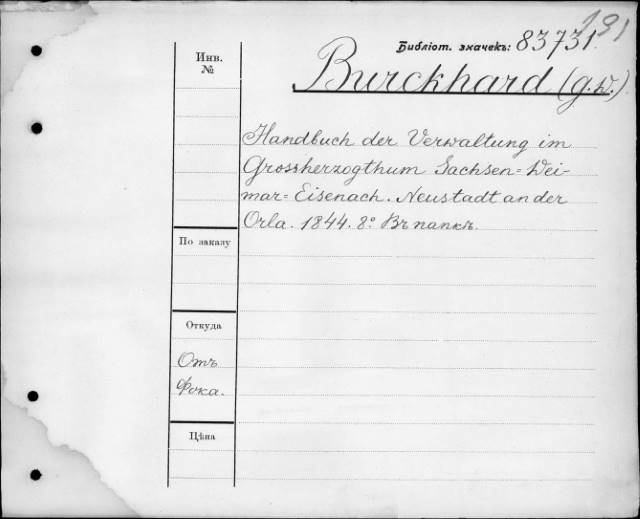 191
Библіот. значекъ: 83731.
Инв. №
Burckhard (G. W.)
Handbuch der Verwaltung im
Grossherzogthum Sachsen=Wei-
mar=Eisenach. Neustadt an der
Orla. 1844. 8º Въ папкѣ.
По заказу
Откуда
Отъ
Фока.
Цѣна